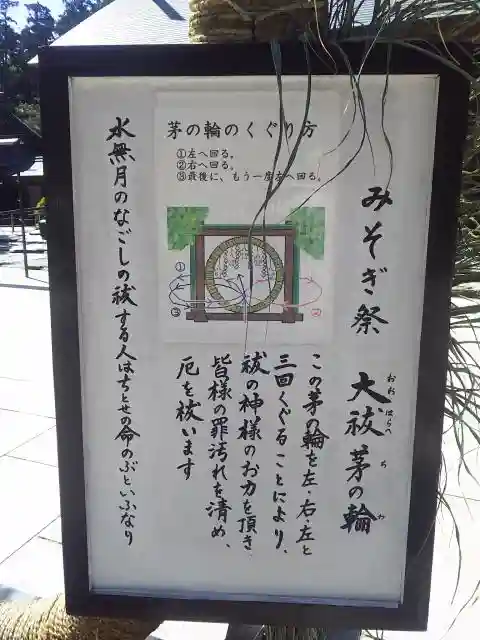 みそぎ祭 大祓 茅の輪
おお はらへ ち わ
この茅の輪を左・右・左と
三回くぐることにより、
祓の神様のお力を頂き
皆様の罪汚れを清め、
厄を祓います
茅の輪のくぐり方
①左へ回る。
②右へ回る。
③最後に、もう一度左へ回る。
①
③
②
水無月のなごしの祓する人はちとせの命のぶといふなり